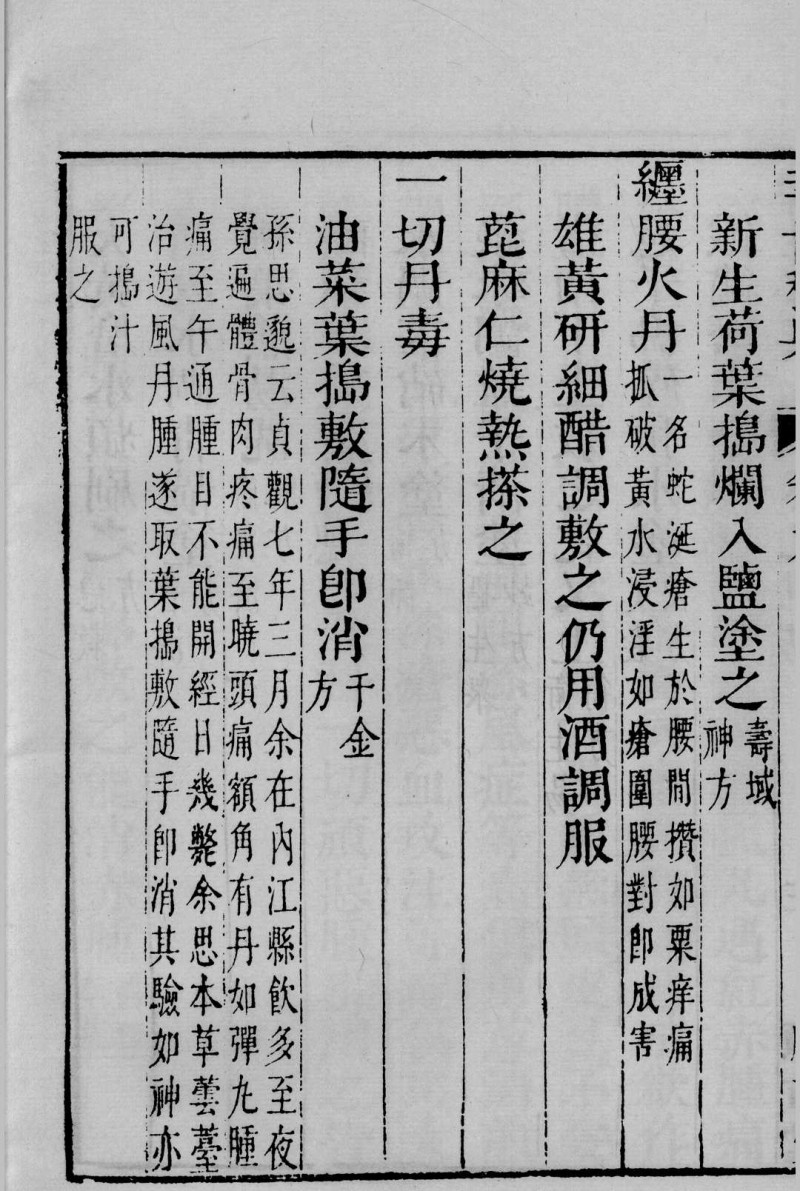 新生荷葉搗爛入鹽塗之壽域
神方
纒腰火丹一名蛇涎瘡生於腰間攢如粟痒痛
抓破黃水浸淫如瘡圍腰對卽成害
雄黃研細醋調敷之仍用酒調服
蓖麻仁燒熱搽之
一切丹毒
油菜葉搗敷隨手卽消千金
方
孫思邈云貞觀七年三月余在內江縣飲多至夜
覺遍體骨肉疼痛至曉頭痛額角有丹如彈丸腫
痛至午通腫目不能開經日幾斃余思本草蕓薹
治遊風丹腫遂取葉搗敷隨手卽消其驗如神亦
可搗汁
服之